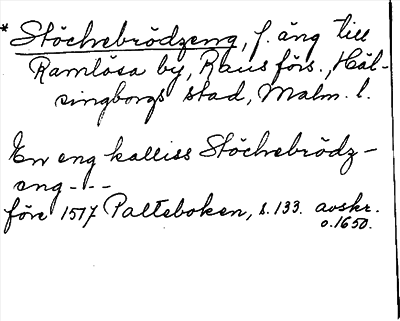 * Stöchrebrödzeng, f. äng till
Ramlösa by, Raus förs., Häl-
singborgs stad, Malm. l.
En eng kalliss Stöchrebrödz-
eng - - -
före 1517 Palteboken, s. 133. avskr.
o. 1650.